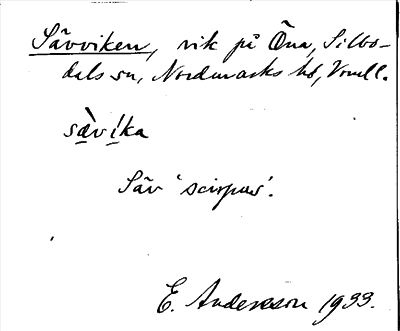 Sävviken, vik på Öna, Silbo-
dals sn, Nordmarks hd, Vrml.
sæ̀víka
Säv 'scirpus'.
E. Andersson 1933.